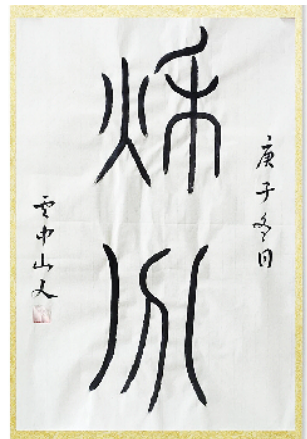 庚子冬日
秋分
雲中山人